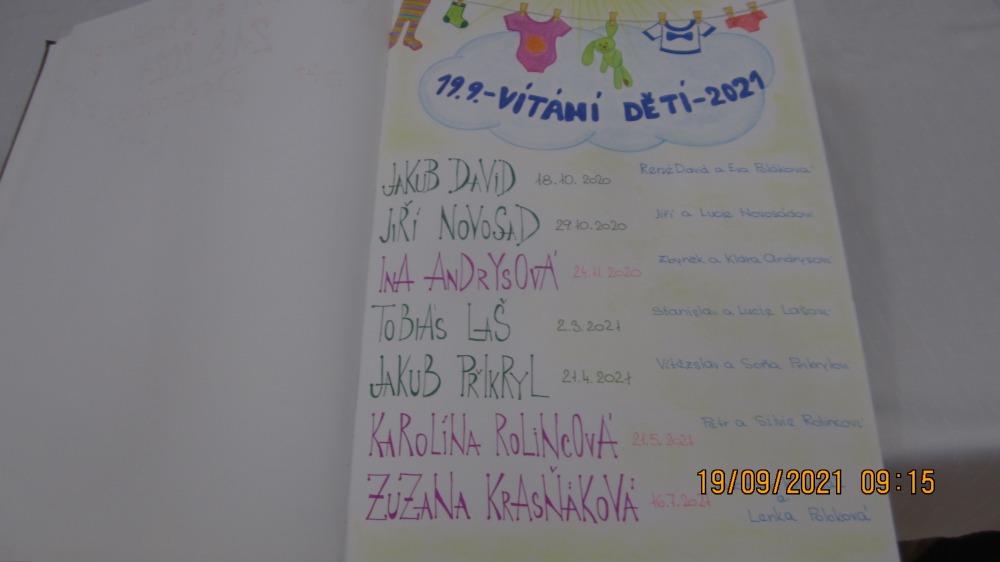 19.9.-VÍTÁNÍ DĚTÍ-2021
JAKUB DAVID 18.10.2020 René David a Eva Poláková
JIŘÍ NOVOSAD 29.10.2020 Jiří a Lucie Novosádovi
INA ANDRYSOVÁ 24.11.2020 Zbyněk a Klára Andrysovi
TOBIÁS LAŠ 2.3.2021 Stanislav a Lucie Lašovi
JAKUB PŘIKRYL 21.4.2021 Vítězslav a Soňa Přikrylovi
KAROLÍNA ROLINCOVÁ 21.5.2021 Petr a Silvie Rolincovi
ZUZANA KRASŇÁKOVÁ 16.7.2021 a
Lenka Poloková
19/09/2021 09:15